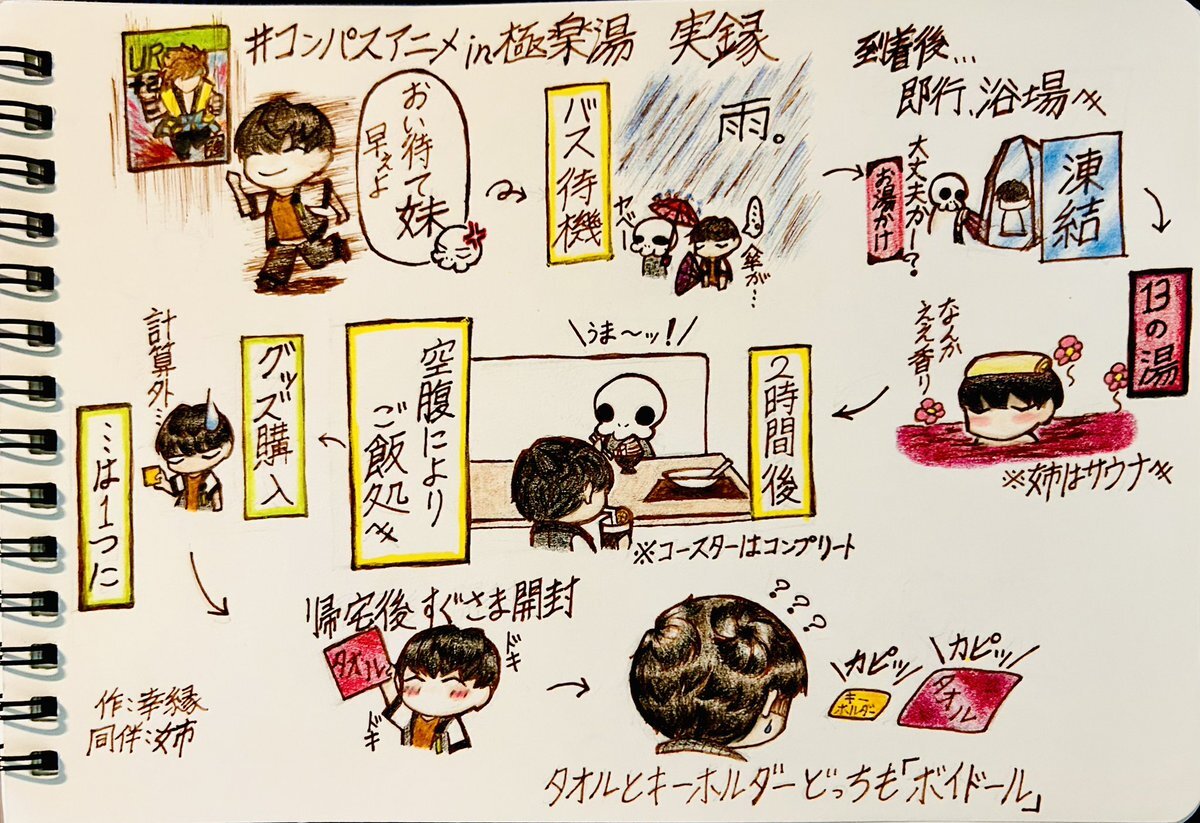 #コンパスアニメin極楽湯 実録
UR
おい待て妹
早えよ
バス待機
雨。
ヤベー
…。
傘が…
到着後…
即行、浴場へ
お湯かけ
大丈夫かー?
凍結
13の湯
なんか
ええ香り
※姉はサウナへ
2時間後
うま〜ッ!
※コースターはコンプリート
空腹により
ご飯処へ
グッズ購入
計算外…
…は1つに
帰宅後すぐさま開封
タオル
ドキ
ドキ
???
カピッ
キー
ホルダー
カピッ
タオル
タオルとキーホルダーどっちも「ボイドール」
作:幸縁
同伴:姉